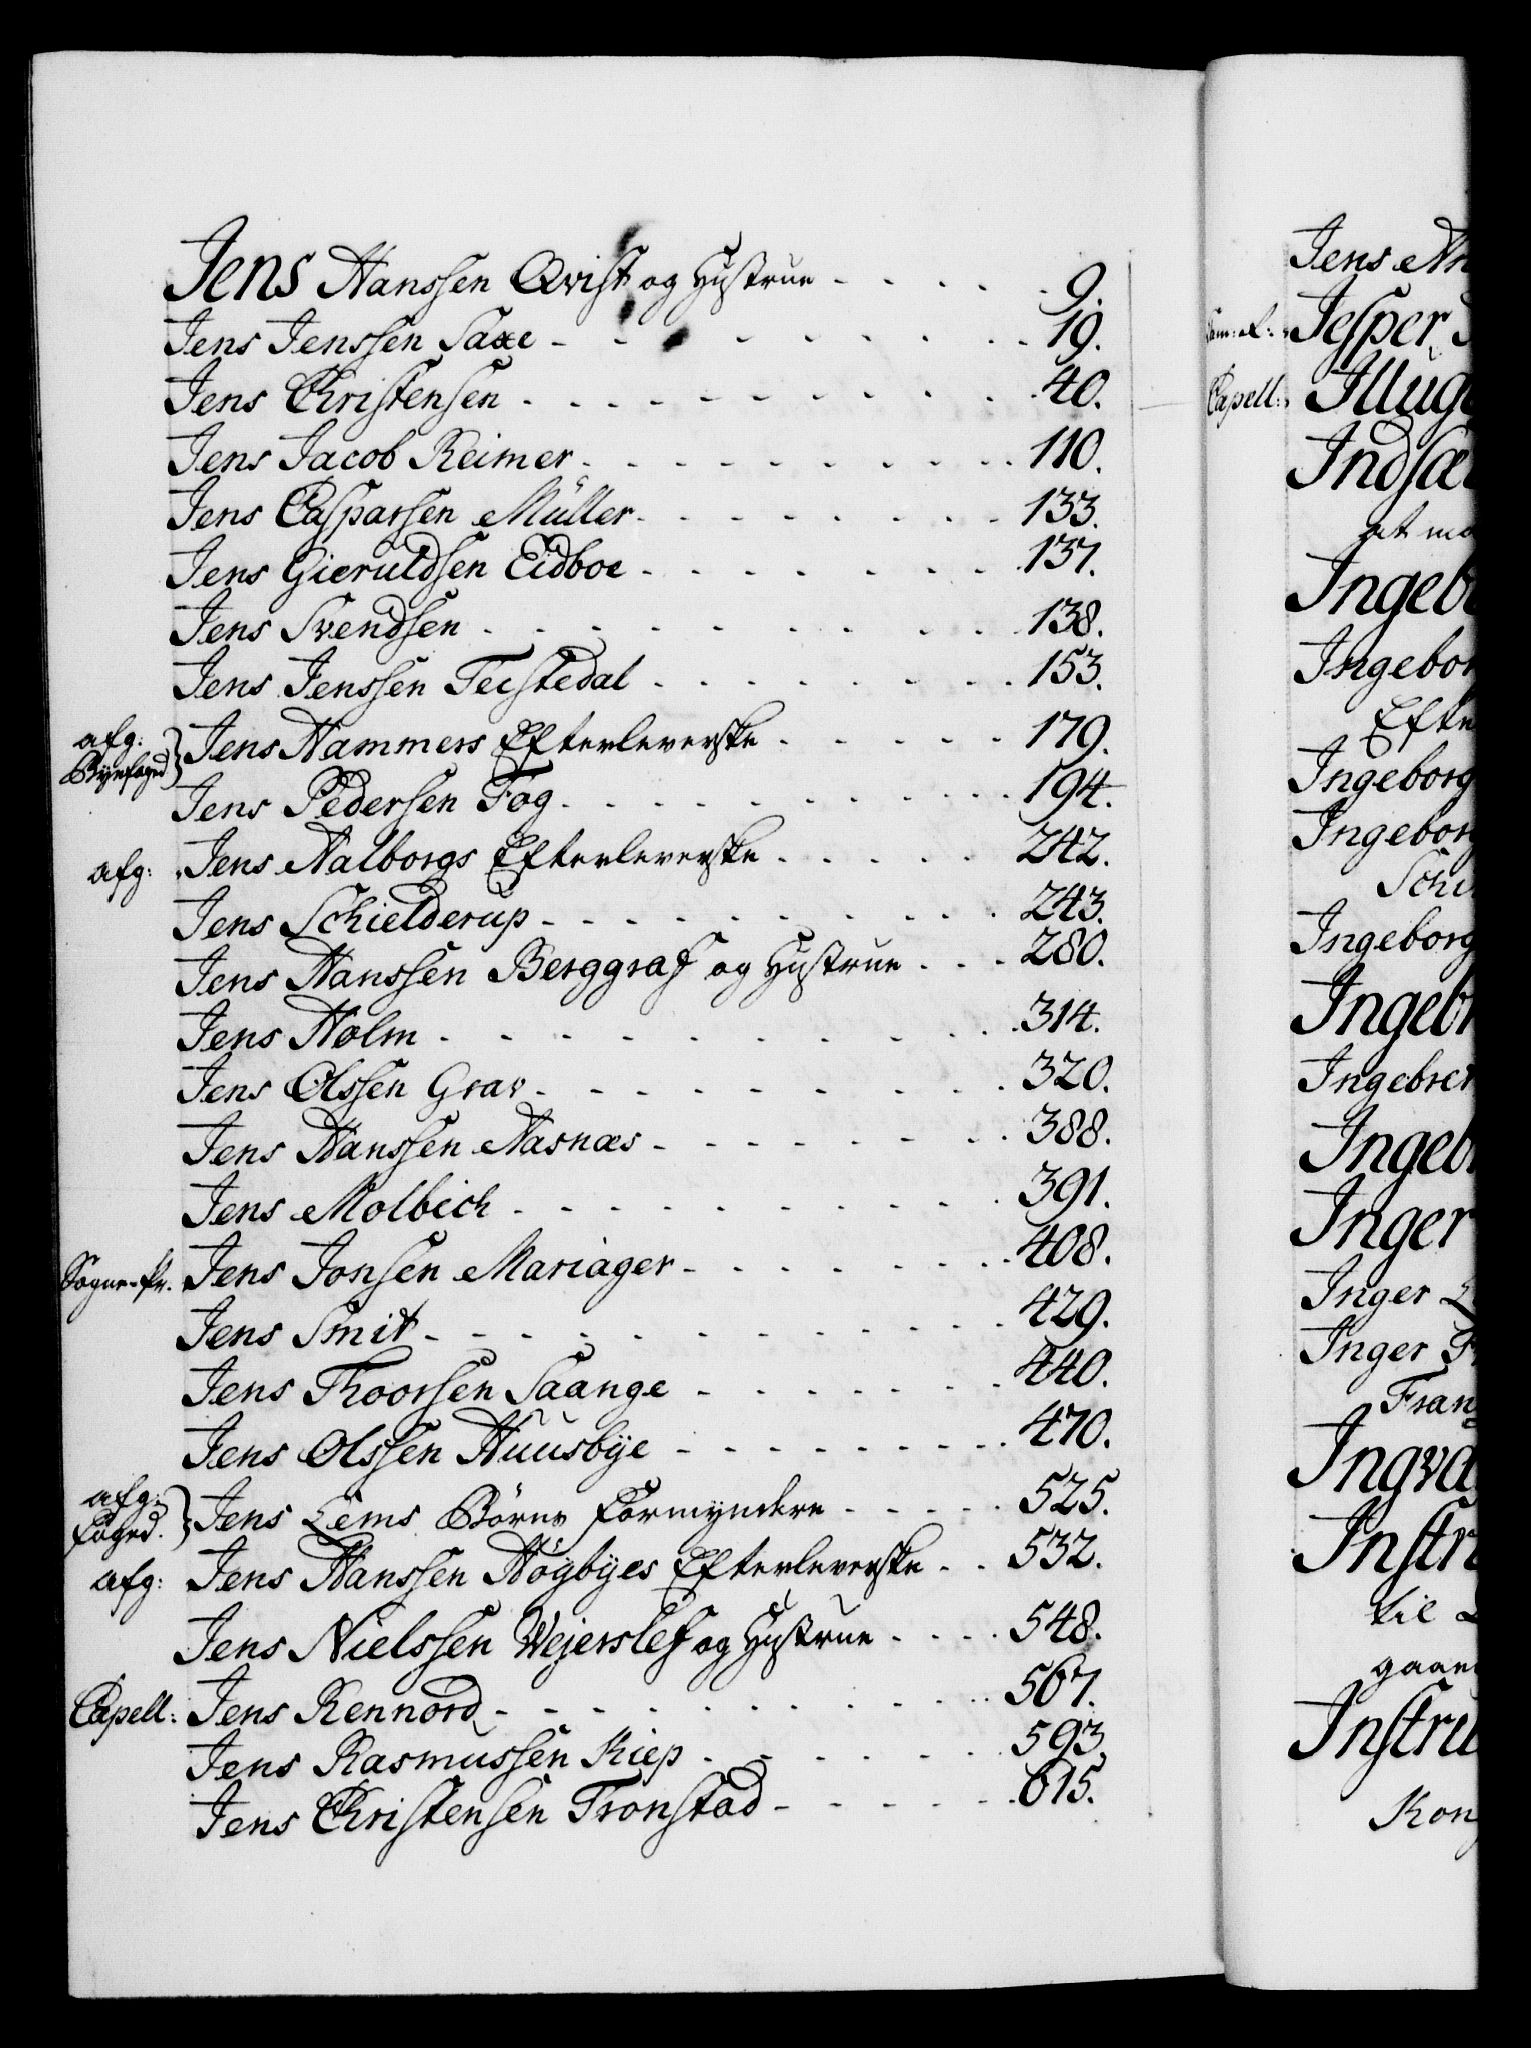 Jens Hanssen Qvist og Hustrue - - - - - 9.
Jens Jenssen Saxe - - - - - - - - - 19.
Jens Christensen - - - - - - - - - 40.
Jens Jacob Reimer - - - - - - - - 110.
Jens Casparsen Müller - - - - - - - 133.
Jens Gieruldsen Eidboe - - - - - - - 137.
Jens Svendsen - - - - - - - - - - 138.
Jens Jenssen Teistedal - - - - - - - 153.
afg: Byefoged } Jens Hammers Efterleverske - - - - - 179.
Jens Pedersen Fog - - - - - - - - - 194.
afg: Jens Aalborgs Efterleverske - - - - 242.
Jens Schielderup - - - - - - - - - 243.
Jens Hanssen Berggraf og Hustrue - - - 280.
Jens Holm - - - - - - - - - - 314.
Jens Olssen Grav - - - - - - - - - 320.
Jens Hanssen Aasnæs - - - - - - - 388.
Jens Molbich - - - - - - - - - 391.
Sogne-Pr. Jens Jonsen Mariager - - - - - - - 408.
Jens Smit - - - - - - - - - - 429.
Jens Thoorsen Saange - - - - - - - 440.
Jens Olssen Huusbye - - - - - - - - 470.
afg: Foged. } Jens Lems Börns Formyndere - - - - - 525.
afg: Jens Hanssen Höybyes Efterleverske - - 532.
Jens Nielssen Wejerslef og Hustrue - - - - 548.
Capell: Jens Rennord - - - - - - - - - 567.
Jens Rasmussen Kiep - - - - - - - 593.
Jens Christensen Tronstad - - - - - - 615.
Jens
Jesper
Capell: Illug
Indsæ
at
Ingeb
Ingebor
Efte
Ingeborg
Ingeborg
Schi
Ingeborg
Ingeb
Ingebre
Ingeb
Inger
Inger
Inger
Fran
Ingva
Instr
til
gaae
Instru
Kon